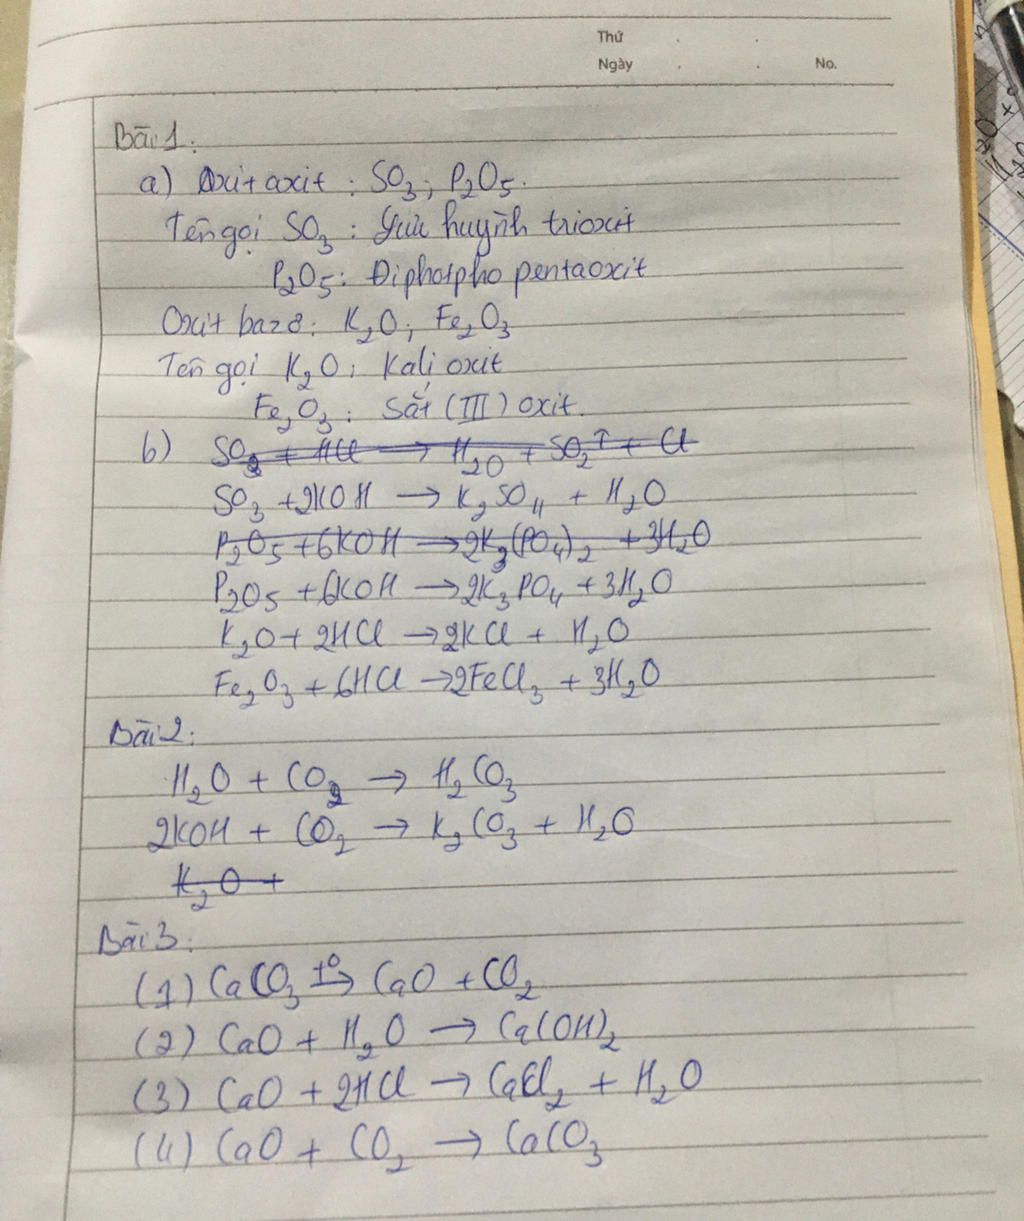 Thứ
Ngày No.
Bài 1:
a) Oxit axit : SO₃ ; P₂O₅.
Tên gọi SO₃ : Lưu huỳnh trioxit
P₂O₅ : Điphotpho pentaoxit
Oxit bazơ : K₂O ; Fe₂O₃
Tên gọi K₂O : Kali oxit
Fe₂O₃ : Sắt (III) oxit.
b) SO₃ + HCl → H₂O + SO₂↑ + Cl
SO₃ + 2KOH → K₂SO₄ + H₂O
P₂O₅ + 6KOH → 2K₃(PO₄)₂ + 3H₂O
P₂O₅ + 6KOH → 2K₃PO₄ + 3H₂O
K₂O + 2HCl → 2KCl + H₂O
Fe₂O₃ + 6HCl → 2FeCl₃ + 3H₂O
Bài 2:
H₂O + CO₂ → H₂CO₃
2KOH + CO₂ → K₂CO₃ + H₂O
K₂O +
Bài 3:
(1) CaCO₃ t°→ CaO + CO₂
(2) CaO + H₂O → Ca(OH)₂
(3) CaO + 2HCl → CaCl₂ + H₂O
(4) CaO + CO₂ → CaCO₃